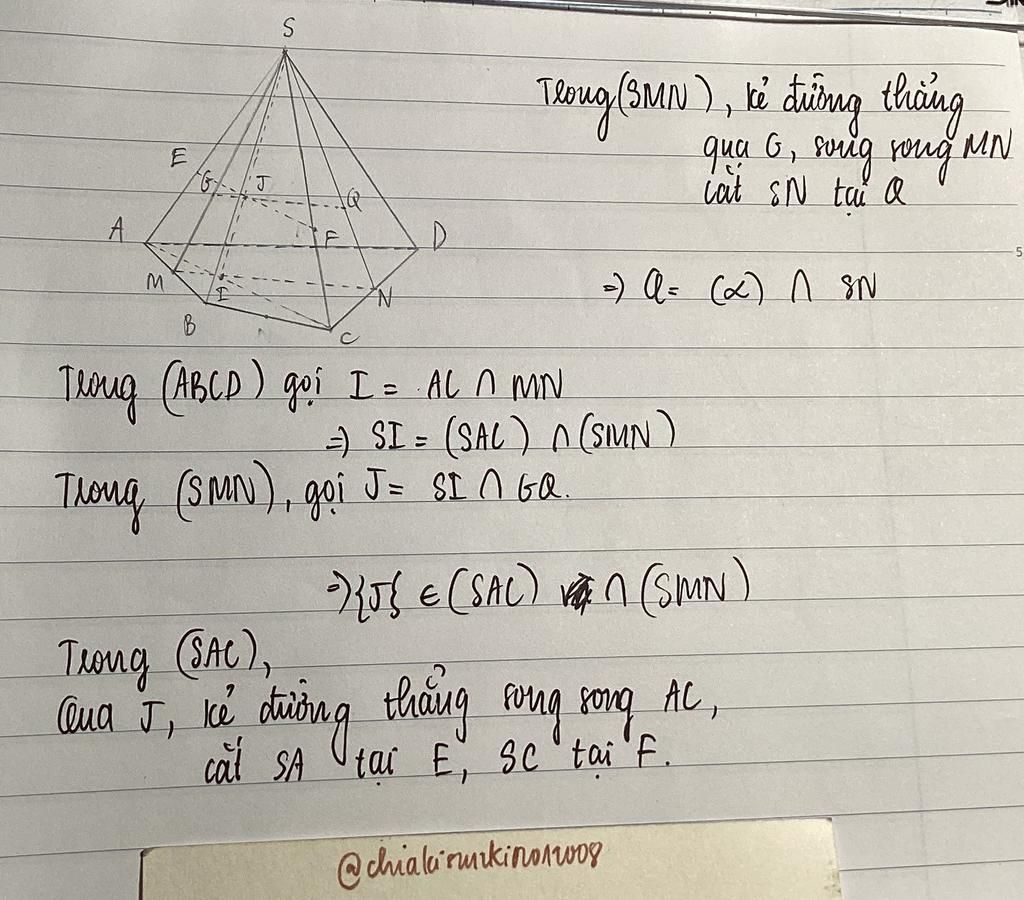 S
E
G
J
Q
A
F
D
M
I
N
B
C
Trong (SMN), kẻ đường thẳng
qua G, song song MN
cắt SN tại Q
=) Q = (α) ∩ SN
Trong (ABCD) gọi I = AC ∩ MN
=) SI = (SAC) ∩ (SMN)
Trong (SMN), gọi J = SI ∩ GQ.
=) {J} ∈ (SAC) ∩ (SMN)
Trong (SAC),
Qua J, kẻ đường thẳng song song AC,
cắt SA tại E, SC tại F.
5